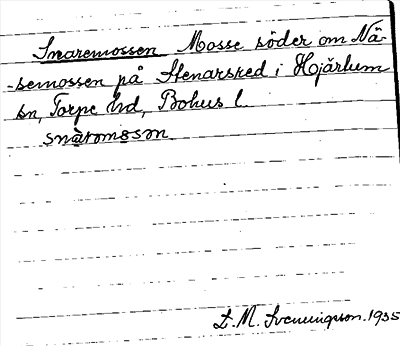 Snaremossen Mosse söder om Nä-
-semossen på Stenarsred i Hjärtum
sn, Torpe hd, Bohus l.
snàromosən
L. M. Svenungsson. 1935